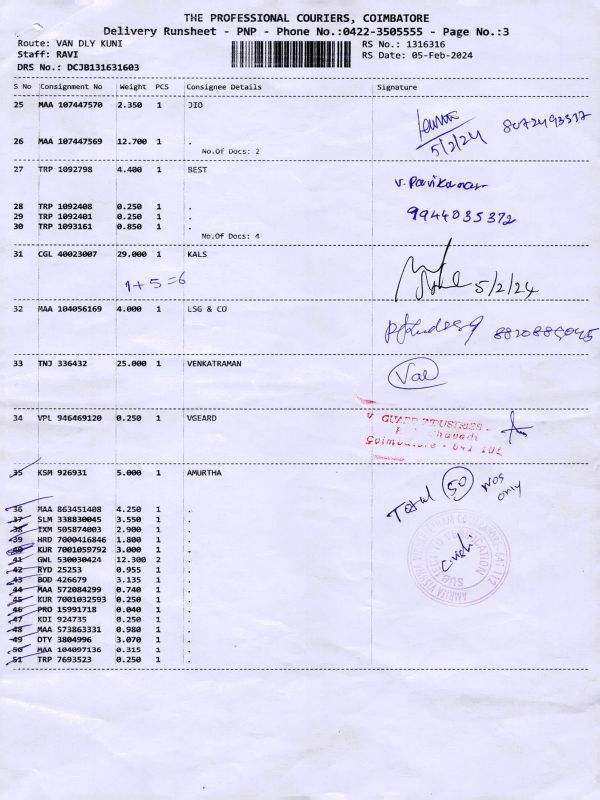 THE PROFESSIONAL COURIERS, COIMBATORE
Delivery Runsheet - PNP - Phone No.:0422-3505555 - Page No.:3
Route: VAN DLY KUNI
RS No.: 1316316
Staff: RAVI
RS Date: 05-Feb-2024
DRS No.: DCJB131631603
S No Consignment No Weight PCS Consignee Details Signature
25 MAA 107447570 2.350 1 JIO
8072493537
5/2/24
26 MAA 107447569 12.700 1 .
No.Of Docs: 2
27 TRP 1092798 4.400 1 BEST
V. Pavikumar
28 TRP 1092408 0.250 1 .
29 TRP 1092401 0.250 1 .
9944035372
30 TRP 1093161 0.850 1 .
No.Of Docs: 4
31 CGL 40023007 29.000 1 KALS
1+5=6
5/2/24
32 MAA 104056169 4.000 1 LSG & CO
33 TNJ 336432 25.000 1 VENKATRAMAN
34 VPL 946469120 0.250 1 VGEARD
V GUARD INDUSTRIES
Coimbatore - 641
35 KSM 926931 5.000 1 AMURTHA
Total 50 nos only
36 MAA 863451408 4.250 1 .
37 SLM 338830045 3.550 1 .
38 IXM 505874003 2.900 1 .
39 HRD 7000416846 1.800 1 .
40 KUR 7001059792 3.000 1 .
41 GWL 530030424 12.300 2 .
42 RYD 25253 0.955 1 .
43 BOD 426679 3.135 1 .
44 MAA 572084299 0.740 1 .
45 KUR 7001032593 0.250 1 .
46 PRO 15991718 0.040 1 .
47 KDI 924735 0.250 1 .
48 MAA 573863331 0.980 1 .
49 OTY 3804996 3.070 1 .
50 MAA 104097136 0.315 1 .
51 TRP 7693523 0.250 1 .